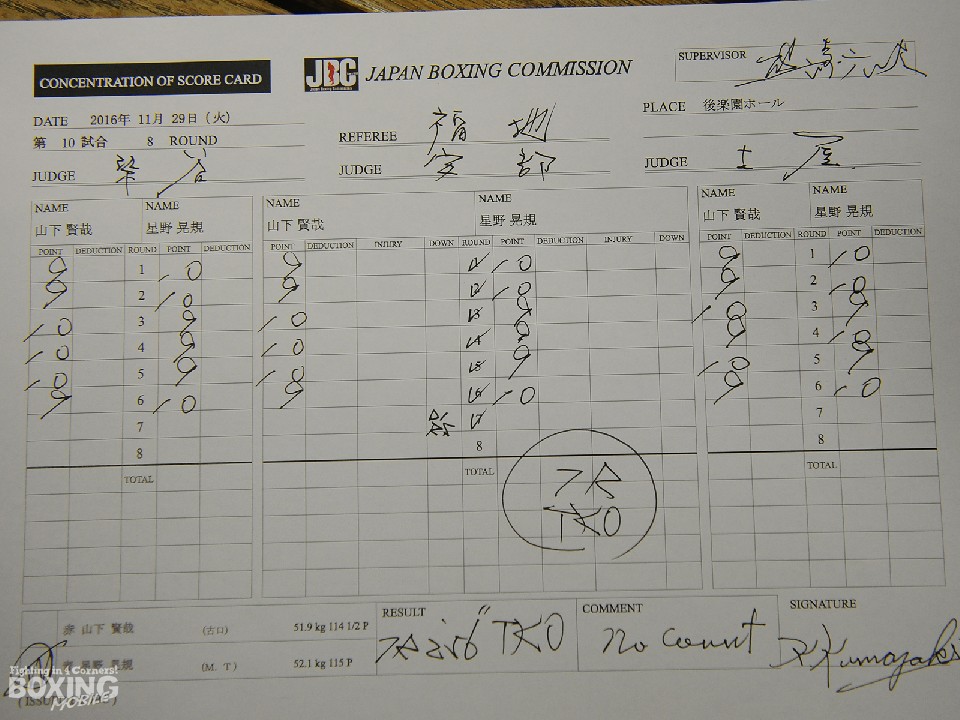 CONCENTRATION OF SCORE CARD
JBC JAPAN BOXING COMMISSION
SUPERVISOR
DATE 2016年 11月 29日 (火)
第 10 試合 8 ROUND
REFEREE 福地
PLACE 後楽園ホール
JUDGE
JUDGE 安部
JUDGE 土屋
NAME NAME NAME NAME NAME NAME
山下 賢哉 星野 晃規 山下 賢哉 星野 晃規 山下 賢哉 星野 晃規
POINT DEDUCTION ROUND POINT DEDUCTION POINT DEDUCTION INJURY DOWN ROUND POINT DEDUCTION INJURY DOWN POINT DEDUCTION ROUND POINT DEDUCTION
9 1 10 9 1 10 9 1 10
9 2 10 9 2 10 9 2 10
10 3 9 10 3 9 10 3 9
10 4 9 10 4 9 9 4 10
10 5 9 10 5 9 10 5 9
9 6 10 9 6 10 9 6 10
7 7 7
8 8 8
TOTAL TOTAL TOTAL
7R
TKO
山下 賢哉 (古口) 51.9 kg 114 1/2 P
星野 晃規 (M. T) 52.1 kg 115 P
RESULT
7R 2'56" TKO
COMMENT
No Count
SIGNATURE
K Kumazaki
Fighting in 4 Corners!
BOXING
MOBILE